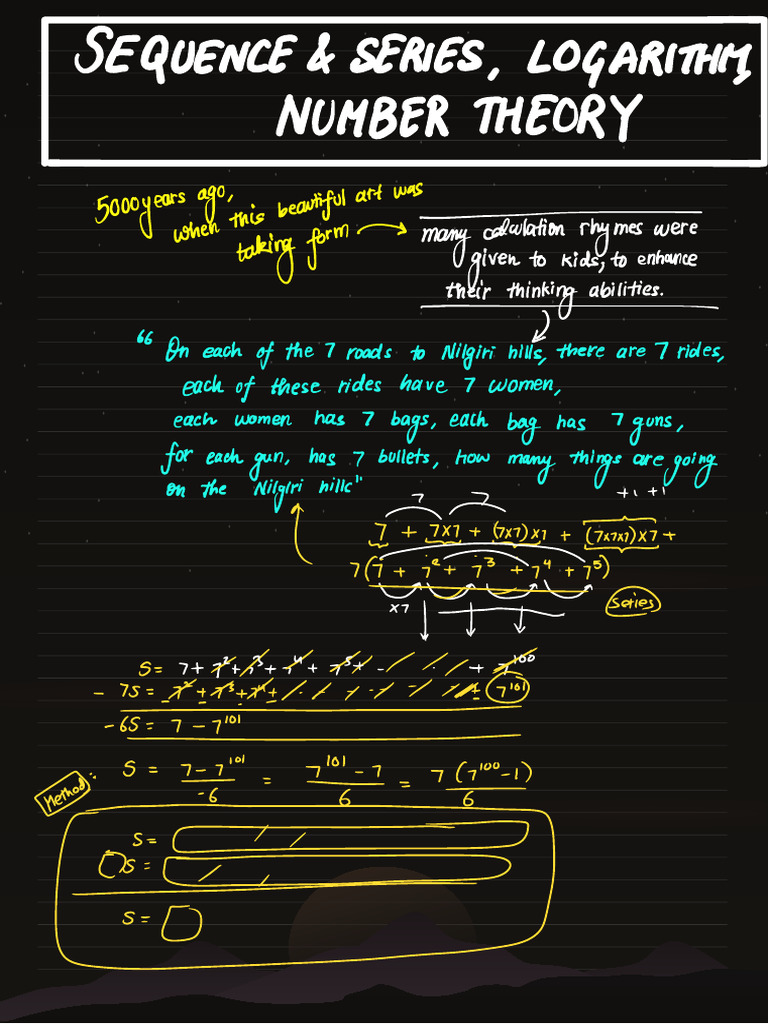 SEQUENCE & SERIES, LOGARITHM,
NUMBER THEORY
5000 years ago,
when this beautiful art was
taking form →
many calculation rhymes were
given to kids, to enhance
their thinking abilities.
“ On each of the 7 roads to Nilgiri hills, there are 7 rides,
each of these rides have 7 women,
each women has 7 bags, each bag has 7 guns,
for each gun, has 7 bullets, how many things are going
on the Nilgiri hills”
7 7 +1 +1
7 + 7×7 + (7×7)×7 + (7×7×7)×7 +
7(7 + 7² + 7³ + 7⁴ + 7⁵)
×7
series
S = 7 + 7² + 7³ + 7⁴ + 7⁵ + - + 7¹⁰⁰
- 7S = 7² + 7³ + 7⁴ + + 7¹⁰¹
- 6S = 7 - 7¹⁰¹
S = (7 - 7¹⁰¹)/-6 = (7¹⁰¹ - 7)/6 = 7(7¹⁰⁰ - 1)/6
Method:
S =
S =
S =